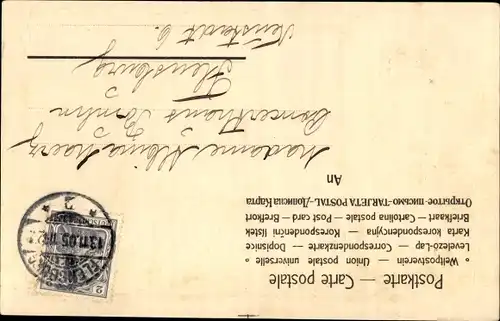 Postkarte — Carte postale
Weltpostverein — Union postale universelle
Levelező-Lap — Correspondenzkarte — Dopisnice
Karta korespondencyjna — Korespondenční lístek
Briefkaart — Cartolina postale — Post card — Brefkort
Открытое письмо—TARJETA POSTAL—Дописна Карта
An
Madame Albina
Concerthaus
Flensburg
Neustadt 6.
FLENSBURG
13.11.05
2